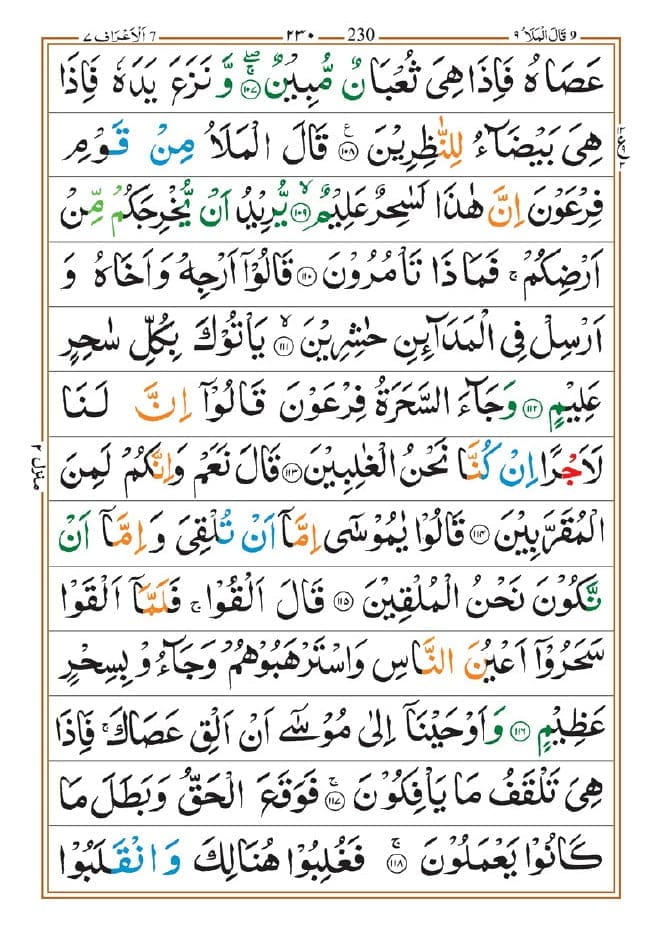 9 قَالَ الْمَلَاُ ٩ 230 ٢٣٠ 7 اَلْاَعْرَاف ٧
عَصَاهُ فَاِذَا هِىَ ثُعْبَانٌ مُّبِيْنٌ ۚۖ ﴿۱۰۷﴾ وَّنَزَعَ يَدَهٗ فَاِذَا
هِىَ بَيْضَآءُ لِلنّٰظِرِيْنَ ﴿۱۰۸﴾ ع قَالَ الْمَلَاُ مِنْ قَوْمِ
فِرْعَوْنَ اِنَّ هٰذَا لَسٰحِرٌ عَلِيْمٌ ۙ﴿۱۰۹﴾ يُّرِيْدُ اَنْ يُّخْرِجَكُمْ مِّنْ
اَرْضِكُمْ ۚ فَمَاذَا تَاْمُرُوْنَ ﴿۱۱۰﴾ قَالُوْۤا اَرْجِهْ وَاَخَاهُ وَ
اَرْسِلْ فِى الْمَدَآئِنِ حٰشِرِيْنَ ۙ﴿۱۱۱﴾ يَاْتُوْكَ بِكُلِّ سٰحِرٍ
عَلِيْمٍ ﴿۱۱۲﴾ وَجَآءَ السَّحَرَةُ فِرْعَوْنَ قَالُوْۤا اِنَّ لَنَا
لَاَجْرًا اِنْ كُنَّا نَحْنُ الْغٰلِبِيْنَ ﴿۱۱۳﴾ قَالَ نَعَمْ وَاِنَّكُمْ لَمِنَ
الْمُقَرَّبِيْنَ ﴿۱۱۴﴾ قَالُوْا يٰمُوْسٰٓى اِمَّاۤ اَنْ تُلْقِىَ وَاِمَّاۤ اَنْ
نَّكُوْنَ نَحْنُ الْمُلْقِيْنَ ﴿۱۱۵﴾ قَالَ اَلْقُوْا ۚ فَلَمَّاۤ اَلْقَوْا
سَحَرُوْۤا اَعْيُنَ النَّاسِ وَاسْتَرْهَبُوْهُمْ وَجَآءُوْ بِسِحْرٍ
عَظِيْمٍ ﴿۱۱۶﴾ وَاَوْحَيْنَاۤ اِلٰى مُوْسٰٓى اَنْ اَلْقِ عَصَاكَ ۚ فَاِذَا
هِىَ تَلْقَفُ مَا يَاْفِكُوْنَ ۚ﴿۱۱۷﴾ فَوَقَعَ الْحَقُّ وَبَطَلَ مَا
كَانُوْا يَعْمَلُوْنَ ۚ﴿۱۱۸﴾ فَغُلِبُوْا هُنَالِكَ وَانْقَلَبُوْا
منزل ٢